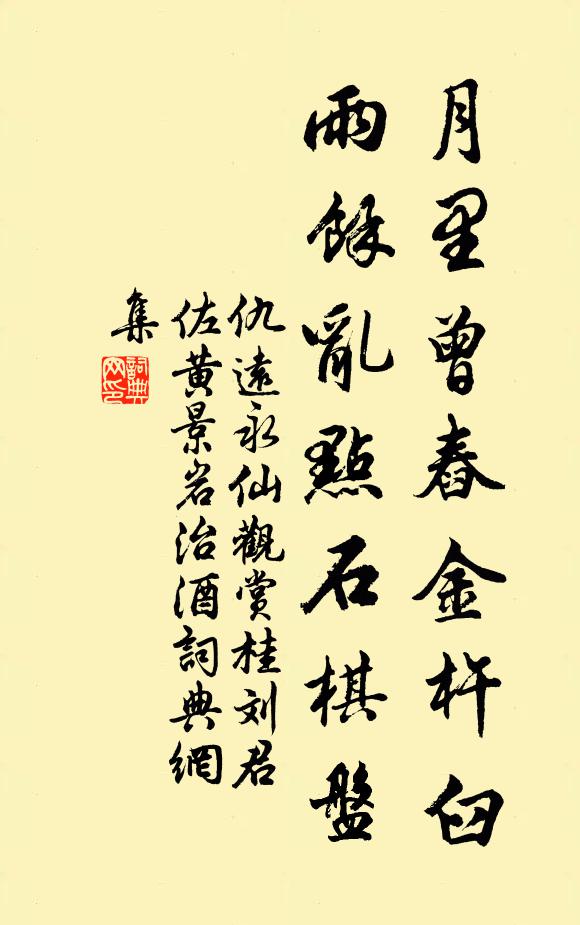 月里曾舂金杵臼
雨餘亂點石棋盤
仇遠永仙觀賞桂刘君
佐黄景岩治酒詞典網
集
詞典
网印